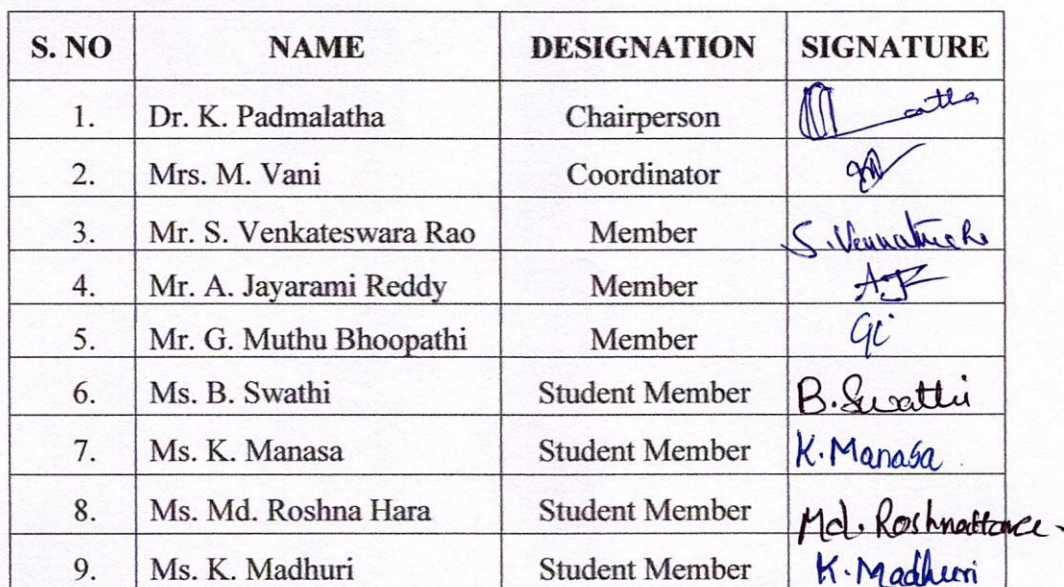 S. NO NAME DESIGNATION SIGNATURE
1. Dr. K. Padmalatha Chairperson
2. Mrs. M. Vani Coordinator
3. Mr. S. Venkateswara Rao Member
4. Mr. A. Jayarami Reddy Member
5. Mr. G. Muthu Bhoopathi Member
6. Ms. B. Swathi Student Member B. Swathi
7. Ms. K. Manasa Student Member K. Manasa
8. Ms. Md. Roshna Hara Student Member Md.
9. Ms. K. Madhuri Student Member K. Madhuri